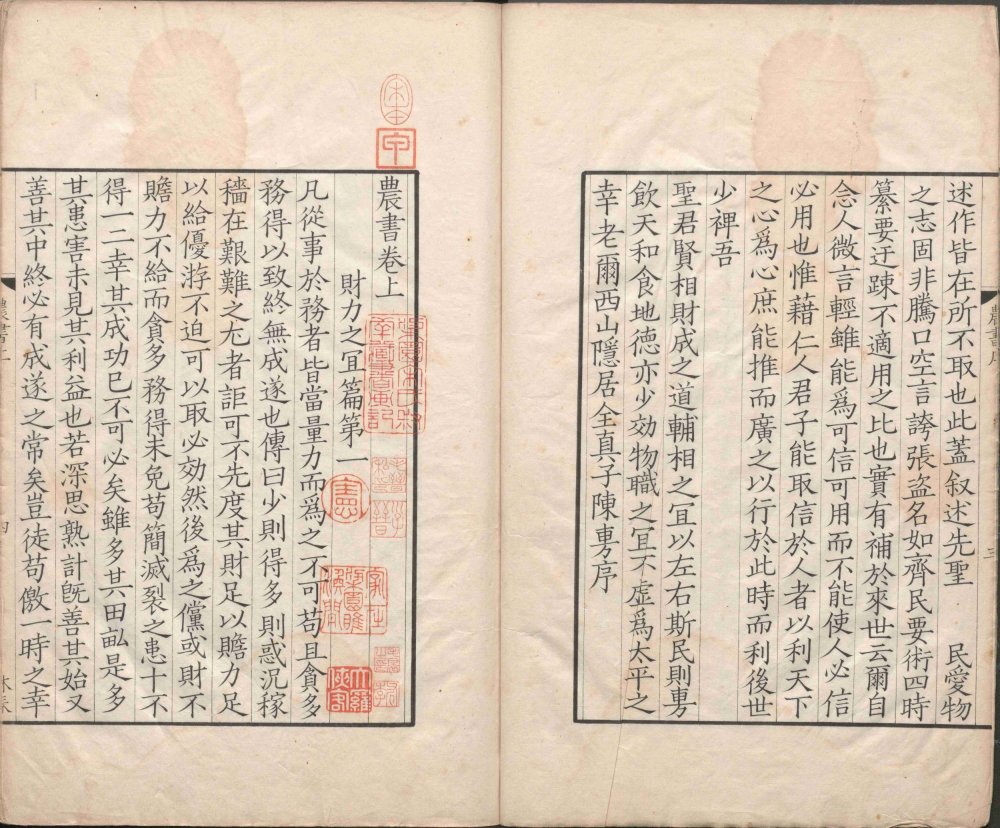 述作皆在所不取也此蓋叙述先聖 民愛物
之志固非騰口空言誇張盗名如齊民要術四時
纂要迂踈不適用之比也實有補於來世云爾自
念人微言輕雖能爲可信可用而不能使人必信
必用也惟藉仁人君子能取信於人者以利天下
之心爲心庶能推而廣之以行於此時而利後世
少裨吾
聖君賢相財成之道輔相之宜以左右斯民則旉
飲天和食地德亦少効物職之宜不虛爲太平之
幸老爾西山隱居全真子陳旉序
農書序
三
宋本
甲
農書卷上
財力之宜篇第一
凡從事於務者皆當量力而爲之不可苟且貪多
務得以致終無成遂也傳曰少則得多則惑況稼
穡在艱難之尤者詎可不先度其財足以贍力足
以給優游不迫可以取必効然後爲之儻或財不
贍力不給而貪多務得未免苟簡滅裂之患十不
得一二幸其成功已不可必矣雖多其田畝是多
其患害未見其利益也若深思熟計既善其始又
善其中終必有成遂之常矣豈徒苟儌一時之幸
農書上
四
憲